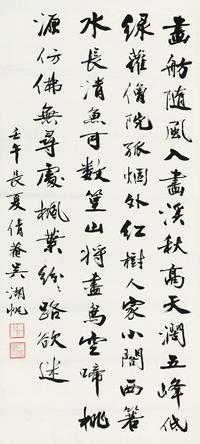 畫舫隨風入畫溪秋高天濶五峰低
绿蘿僧院孤烟外红樹人家小閣西箬
水長清魚可數篁山將盡鳥空啼桃
源仿佛無尋處楓葉紛紛路欲迷
壬午長夏倩菴吴湖帆